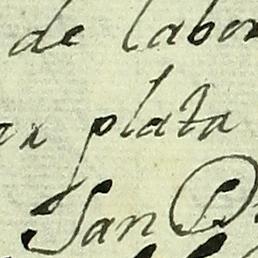 de labor
plata
San